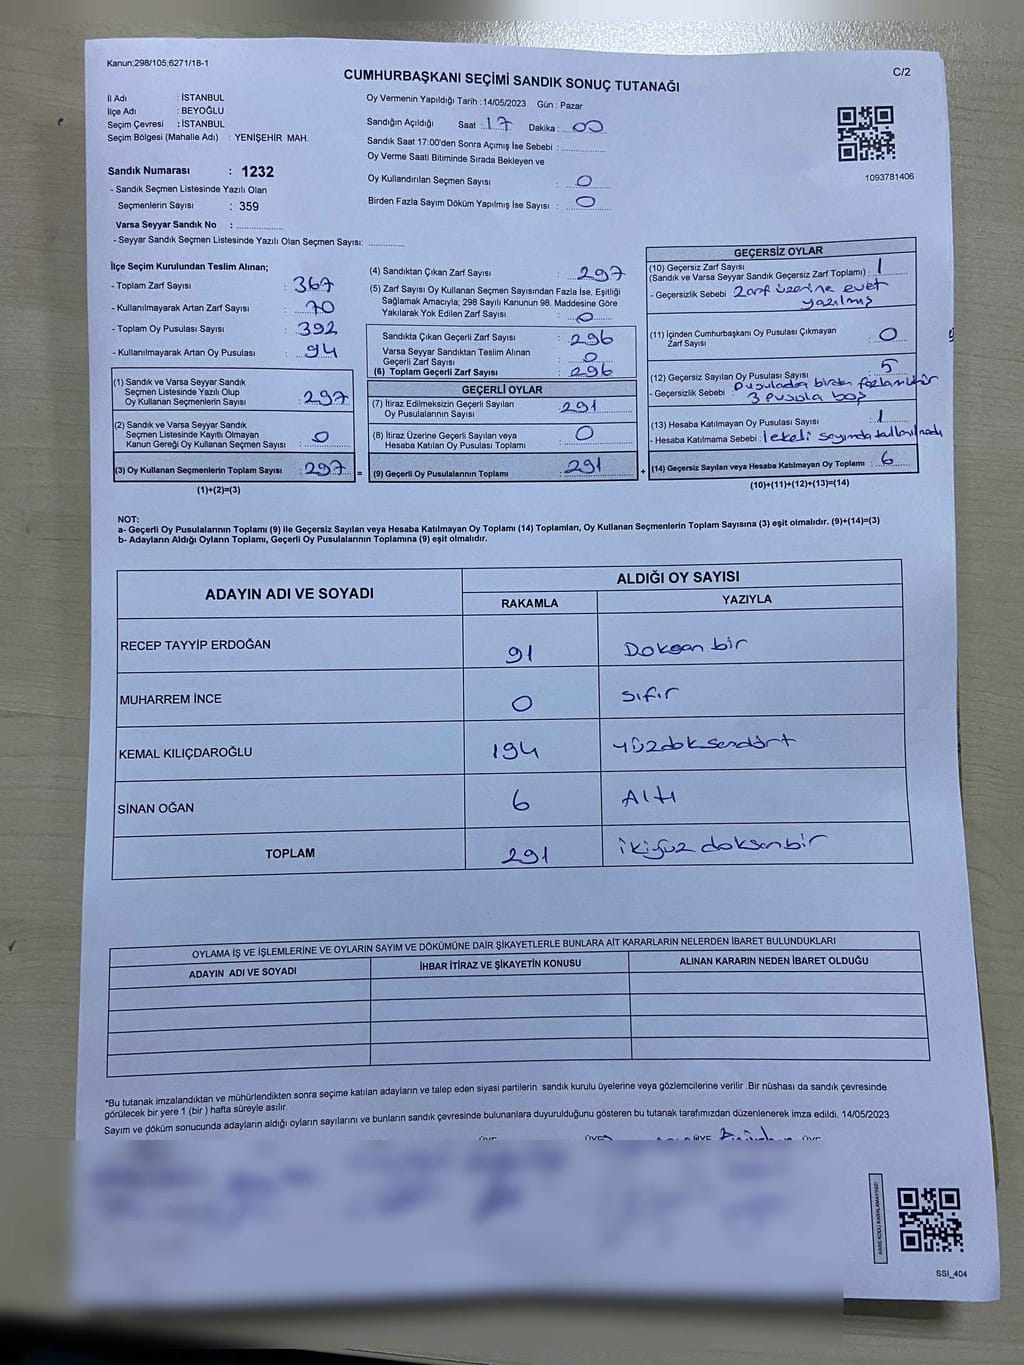 Kanun;298/105;6271/18-1
C/2
CUMHURBAŞKANI SEÇİMİ SANDIK SONUÇ TUTANAĞI
İl Adı : İSTANBUL
İlçe Adı : BEYOĞLU
Seçim Çevresi : İSTANBUL
Seçim Bölgesi (Mahalle Adı) : YENİŞEHİR MAH.
Sandık Numarası : 1232
- Sandık Seçmen Listesinde Yazılı Olan
Seçmenlerin Sayısı : 359
Varsa Seyyar Sandık No : ................
- Seyyar Sandık Seçmen Listesinde Yazılı Olan Seçmen Sayısı: ............
Oy Vermenin Yapıldığı Tarih : 14/05/2023 Gün : Pazar
Sandığın Açıldığı Saat : 17 Dakika : 00
Sandık Saat 17:00'den Sonra Açımış İse Sebebi : ............
Oy Verme Saati Bitiminde Sırada Bekleyen ve
Oy Kullandırılan Seçmen Sayısı : 0
Birden Fazla Sayım Döküm Yapılmış İse Sayısı : 0
1093781406
İlçe Seçim Kurulundan Teslim Alınan;
- Toplam Zarf Sayısı : 367
- Kullanılmayarak Artan Zarf Sayısı : 70
- Toplam Oy Pusulası Sayısı : 392
- Kullanılmayarak Artan Oy Pusulası : 94
(1) Sandık ve Varsa Seyyar Sandık
Seçmen Listesinde Yazılı Olup
Oy Kullanan Seçmenlerin Sayısı : 297
(2) Sandık ve Varsa Seyyar Sandık
Seçmen Listesinde Kayıtlı Olmayan
Kanun Gereği Oy Kullanan Seçmen Sayısı : 0
(3) Oy Kullanan Seçmenlerin Toplam Sayısı : 297 =
(1)+(2)=(3)
(4) Sandıktan Çıkan Zarf Sayısı : 297
(5) Zarf Sayısı Oy Kullanan Seçmen Sayısından Fazla İse, Eşitliği
Sağlamak Amacıyla; 298 Sayılı Kanunun 98. Maddesine Göre
Yakılarak Yok Edilen Zarf Sayısı : 0
Sandıkta Çıkan Geçerli Zarf Sayısı : 296
Varsa Seyyar Sandıktan Teslim Alınan
Geçerli Zarf Sayısı : 0
(6) Toplam Geçerli Zarf Sayısı : 296
GEÇERLİ OYLAR
(7) İtiraz Edilmeksizin Geçerli Sayılan
Oy Pusulalarının Sayısı : 291
(8) İtiraz Üzerine Geçerli Sayılan veya
Hesaba Katılan Oy Pusulası Toplamı : 0
(9) Geçerli Oy Pusulalarının Toplamı : 291 +
GEÇERSİZ OYLAR
(10) Geçersiz Zarf Sayısı
(Sandık ve Varsa Seyyar Sandık Geçersiz Zarf Toplamı) : 1
- Geçersizlik Sebebi : Zarf üzerine evet
yazılmış
(11) İçinden Cumhurbaşkanı Oy Pusulası Çıkmayan
Zarf Sayısı : 0
(12) Geçersiz Sayılan Oy Pusulası Sayısı : 5
- Geçersizlik Sebebi : Pusulada birden fazla mühür
3 pusula boş
(13) Hesaba Katılmayan Oy Pusulası Sayısı : 1
- Hesaba Katılmama Sebebi : lekeli sayımda kullanılmadı
(14) Geçersiz Sayılan veya Hesaba Katılmayan Oy Toplamı : 6
(10)+(11)+(12)+(13)=(14)
NOT:
a- Geçerli Oy Pusulalarının Toplamı (9) ile Geçersiz Sayılan veya Hesaba Katılmayan Oy Toplamı (14) Toplamları, Oy Kullanan Seçmenlerin Toplam Sayısına (3) eşit olmalıdır. (9)+(14)=(3)
b- Adayların Aldığı Oyların Toplamı, Geçerli Oy Pusulalarının Toplamına (9) eşit olmalıdır.
ADAYIN ADI VE SOYADI ALDIĞI OY SAYISI
RAKAMLA YAZIYLA
RECEP TAYYİP ERDOĞAN 91 Doksan bir
MUHARREM İNCE 0 sıfır
KEMAL KILIÇDAROĞLU 194 yüzdoksandört
SİNAN OĞAN 6 Altı
TOPLAM 291 ikiyüz doksanbir
OYLAMA İŞ VE İŞLEMLERİNE VE OYLARIN SAYIM VE DÖKÜMÜNE DAİR ŞİKAYETLERLE BUNLARA AİT KARARLARIN NELERDEN İBARET BULUNDUKLARI
ADAYIN ADI VE SOYADI İHBAR İTİRAZ VE ŞİKAYETİN KONUSU ALINAN KARARIN NEDEN İBARET OLDUĞU
*Bu tutanak imzalandıktan ve mühürlendikten sonra seçime katılan adayların ve talep eden siyasi partilerin sandık kurulu üyelerine veya gözlemcilerine verilir .Bir nüshası da sandık çevresinde
görülecek bir yere 1 (bir ) hafta süreyle asılır.
Sayım ve döküm sonucunda adayların aldığı oyların sayılarını ve bunların sandık çevresinde bulunanlara duyurulduğunu gösteren bu tutanak tarafımızdan düzenlenerek imza edildi. 14/05/2023
KARE KODU KARALAMAYINIZ!
SSI_404